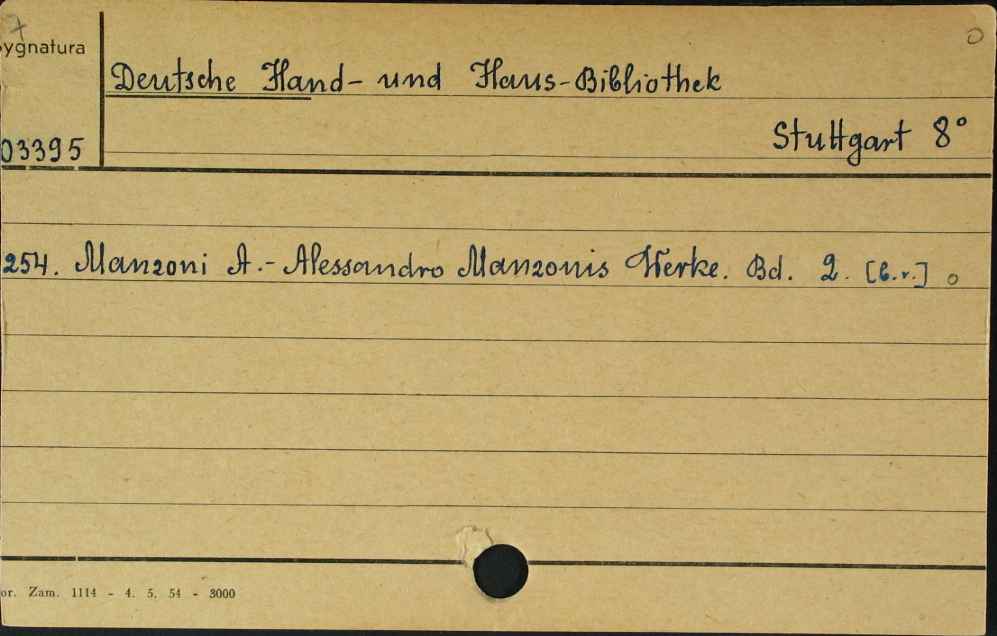 ygnatura
Deutsche Hand- und Haus-Bibliothek
03395
Stuttgart 8°
254. Manzoni A.- Alessandro Manzonis Werke. Bd. 2. [b.r.] o
or. Zam. 1114 - 4. 5. 54 - 3000